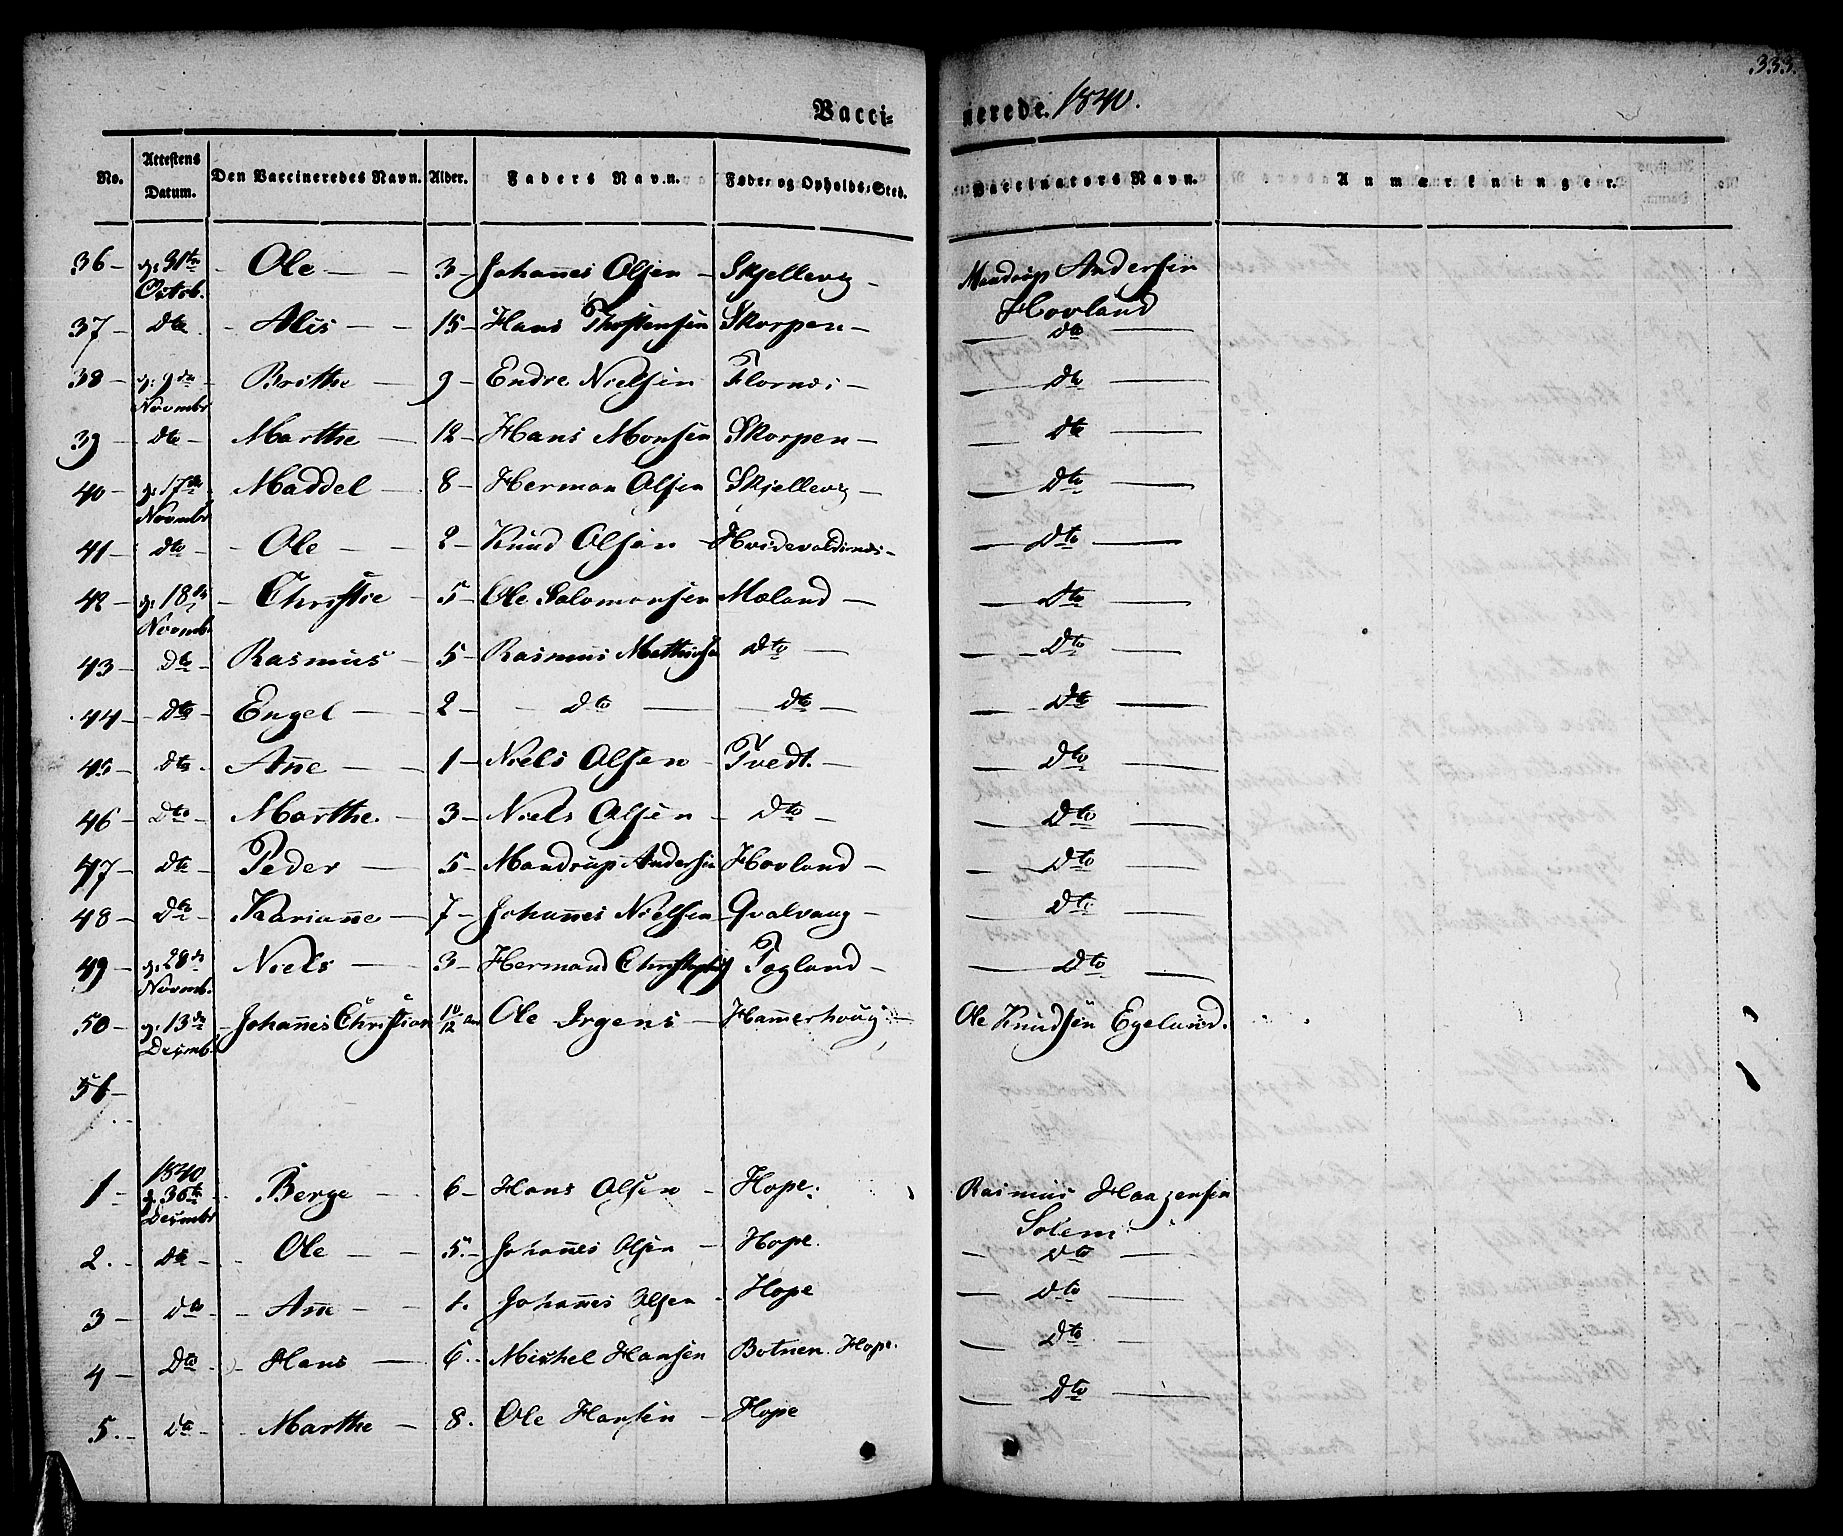 333.
Vaccinerede. 1840.
No. Attestens Datum. Den Vaccineredes Navn. Alder. Faders Navn. Føde- og Opholds-Sted. Vaccinators Navn. Anmærkninger.
36 – d. 31te Octob. – Ole – 3 – Johannes Olsen – Skjellevig – Mandrup Andersen Hovland
37 – Dto – Alis – 15 – Hans Thostensen Skorpen – Dto
38 – d. 9de Novmbr – Brithe – 9 – Endre Nielsen Flornes – Dto
39 – Dto – Marthe – 12 – Hans Monsen Skorpen – Dto
40 – d. 17de Novmbr Maddel – 8 – Herman Olsen Skjellevig – Dto
41 – Dto – Ole – 2 – Knud Olsen – Hvidevoldsnes – Dto
42 – d. 18de Novmb. – Christie – 5 – Ole Salomonsen Mæland – Dto
43 – Dto – Rasmus – 5 – Rasmus Mathiesen Dto – Dto
44 – Dto – Engel – 2 – Dto – Dto – Dto
45 – Dto – Añe – 1 – Niels Olsen – Tvedt. – Dto
46 – Dto – Marthe. – 3 – Niels Olsen – Dto – Dto
47 – Dto – Peder – 5 – Mandrup Andersen Hovland – Dto
48 – Dto – Kariañe – 7 – Johañes Nielsen Qvalvaag – Dto
49 – d. 28de Novmb. Niels – 3 – Hermand Fogland – Dto
50 – d. 13de Desmb. – Johañes Christian 10/12 Aar Ole Irgens – Ham̃erhoug – Ole Knudsen Egeland.
51 –
1 – 1840 d. 30te Desmbr – Berge – 6 – Hans Olsen – Hope. Rasmus Haagensen Solem
2. – Dto – Ole – 5. – Johañes Olsen – Hope. – Dto
3 – Dto – Añe – 1. Johañes Olsen – Hope – Dto
4 – Dto – Hans – 6. Michel Hansen Botnen. Hope. – Dto
5. – Dto – Marthe – 8. Ole Hansen – Hope – Dto